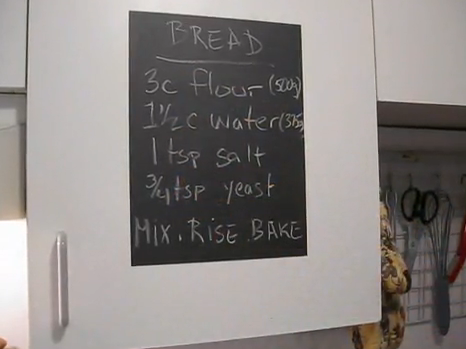 BREAD
3c flour (500g)
1½ c water (375g)
1 tsp salt
¾ tsp yeast
MIX. RISE. BAKE